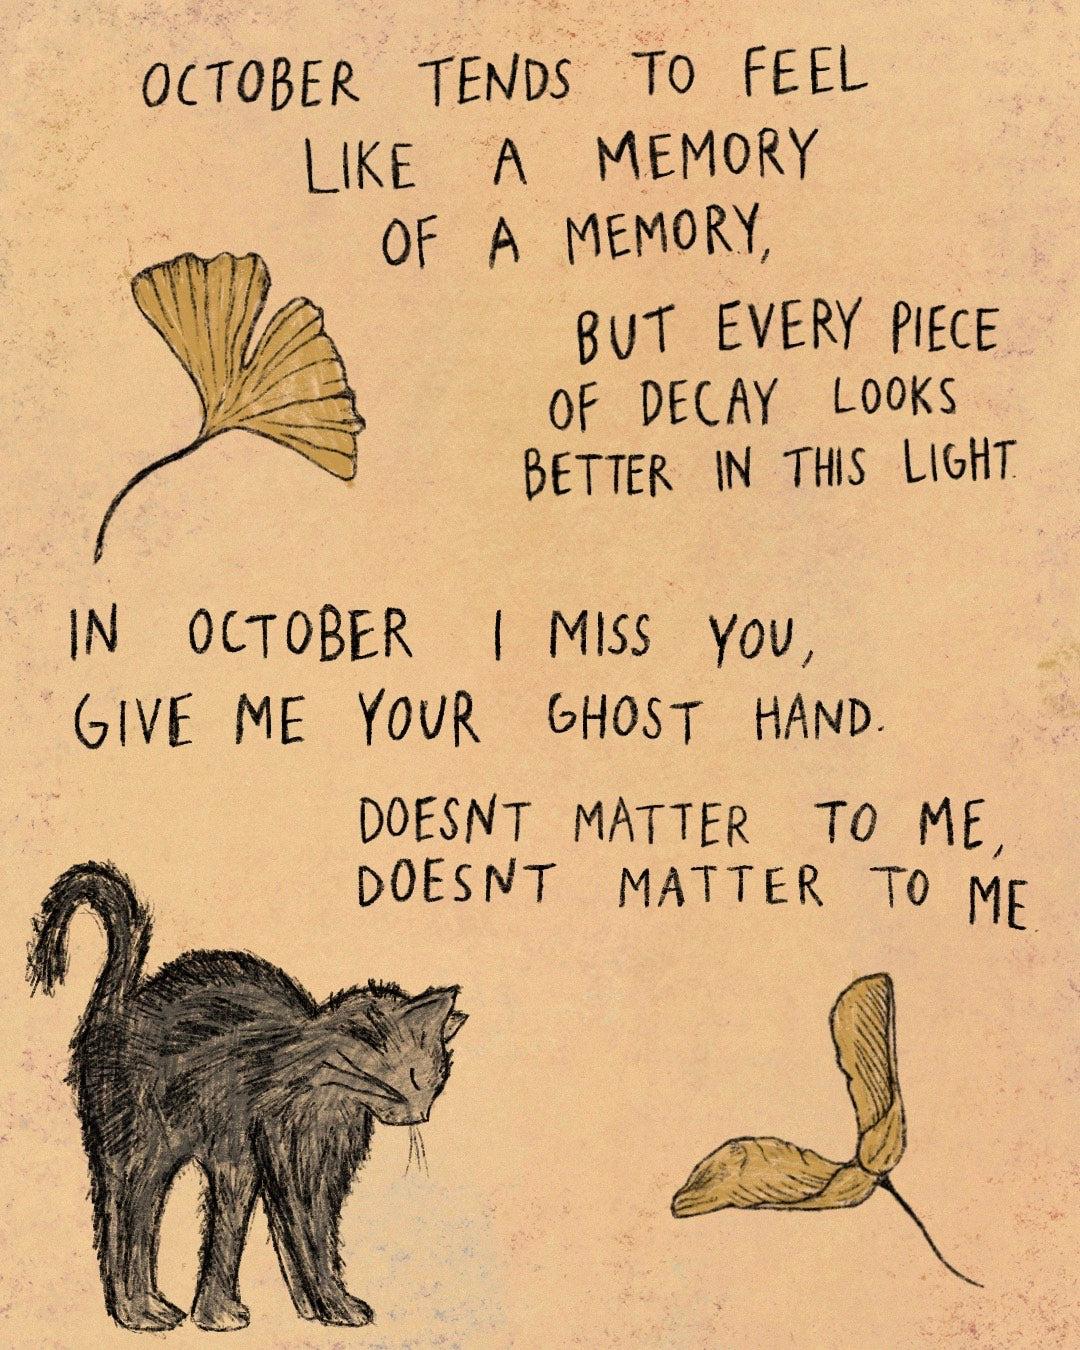 OCTOBER TENDS TO FEEL
LIKE A MEMORY
OF A MEMORY,
BUT EVERY PIECE
OF DECAY LOOKS
BETTER IN THIS LIGHT.
IN OCTOBER I MISS YOU,
GIVE ME YOUR GHOST HAND.
DOESNT MATTER TO ME,
DOESNT MATTER TO ME.